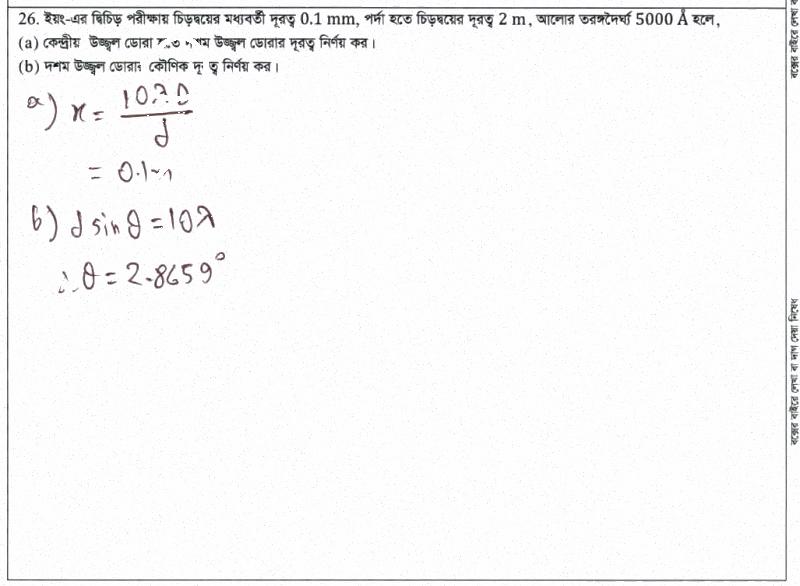 26. ইয়ং-এর দ্বিচিড় পরীক্ষায় চিড়দ্বয়ের মধ্যবর্তী দূরত্ব 0.1 mm, পর্দা হতে চিড়দ্বয়ের দূরত্ব 2 m, আলোর তরঙ্গদৈর্ঘ্য 5000 Å হলে,
(a) কেন্দ্রীয় উজ্জ্বল ডোরা উজ্জ্বল ডোরার দূরত্ব নির্ণয় কর।
(b) দশম উজ্জ্বল ডোরার কৌণিক নির্ণয় কর।
a) x = 10λD / d
= 0.1 m
b) d sin θ = 10λ
∴ θ = 2.8659°
বক্সের বাইরে লেখা বা দাগ দেয়া নিষেধ